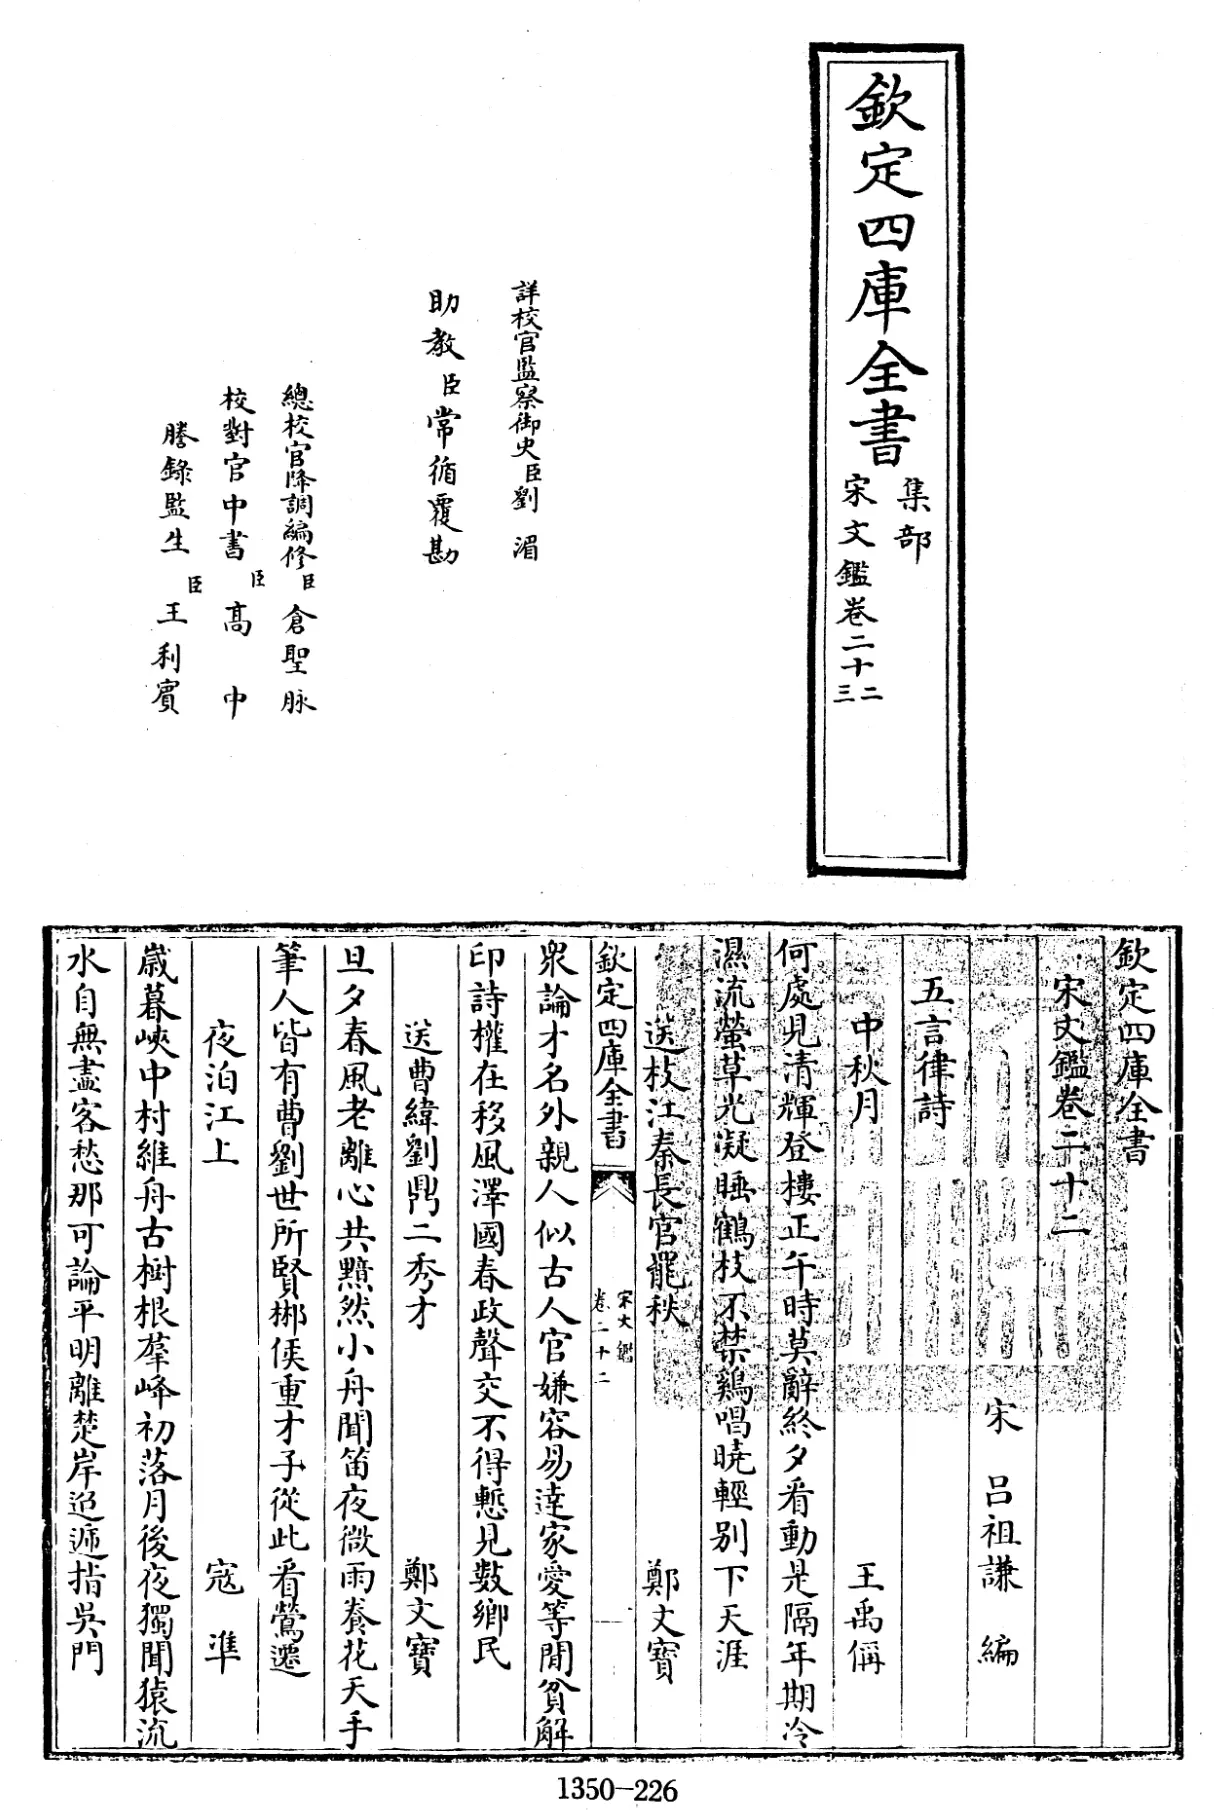 欽定四庫全書
集部
宋文鑑卷二十二
三
詳校官監察御史臣劉湄
助教臣常循覆勘
總校官降調編修臣倉聖脉
校對官中書臣高中
謄錄監生臣王利賓
欽定四庫全書
宋文鑑卷二十二
宋 呂祖謙 編
五言律詩
中秋月 王禹偁
何處見清輝登樓正午時莫辭終夕看動是隔年期冷
濕流螢草光凝睡鶴枝不禁鷄唱曉輕别下天涯
送枝江秦長官罷秩 鄭文寳
欽定四庫全書
宋文鑑
卷二十二
衆論才名外親人似古人官嫌容易達家愛等閒貧解
印詩權在移風澤國春政聲交不得慙見數鄉民
送曹緯劉鼎二秀才 鄭文寳
旦夕春風老離心共黯然小舟聞笛夜微雨養花天手
筆人皆有曹劉世所賢郴侯重才子從此看鶯遷
夜泊江上 寇準
歲暮峽中村維舟古樹根羣峰初落月後夜獨聞猿流
水自無盡客愁那可論平明離楚岸迢遞指吳門
1350-226